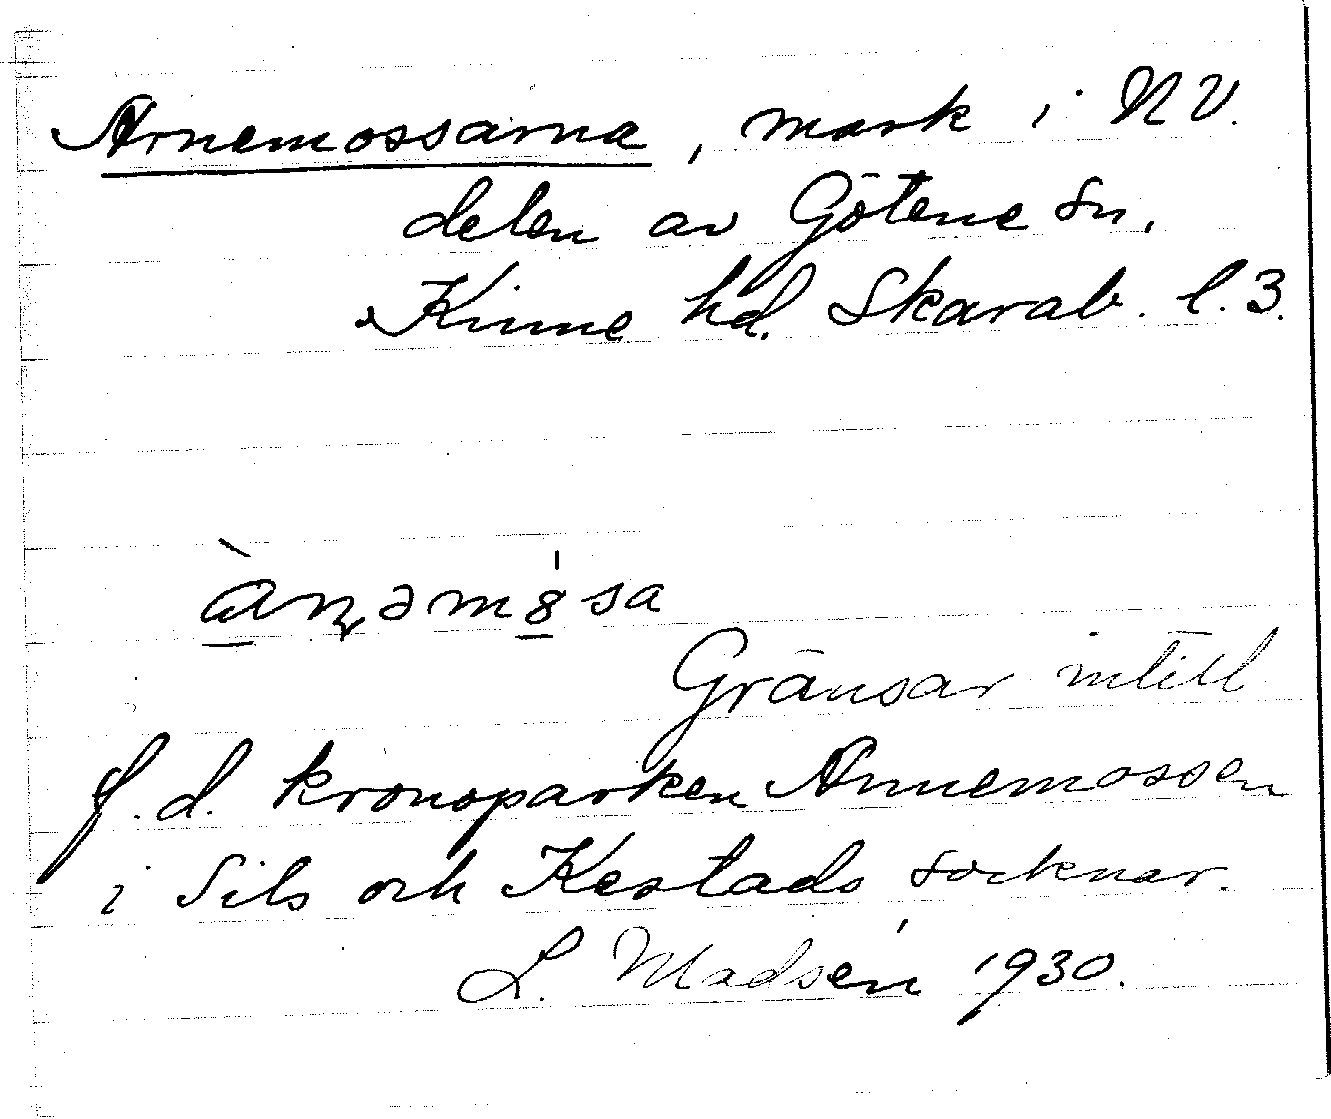 Arnemossarna, mark i NV.
delen av Götene sn,
Kinne hd. Skarab. l. 3.
àn̨əm8̍sa
Gränsar intill
f.d. kronoparken Annemossen
i Sils och Kestads socknar.
L. Madsén 1930.